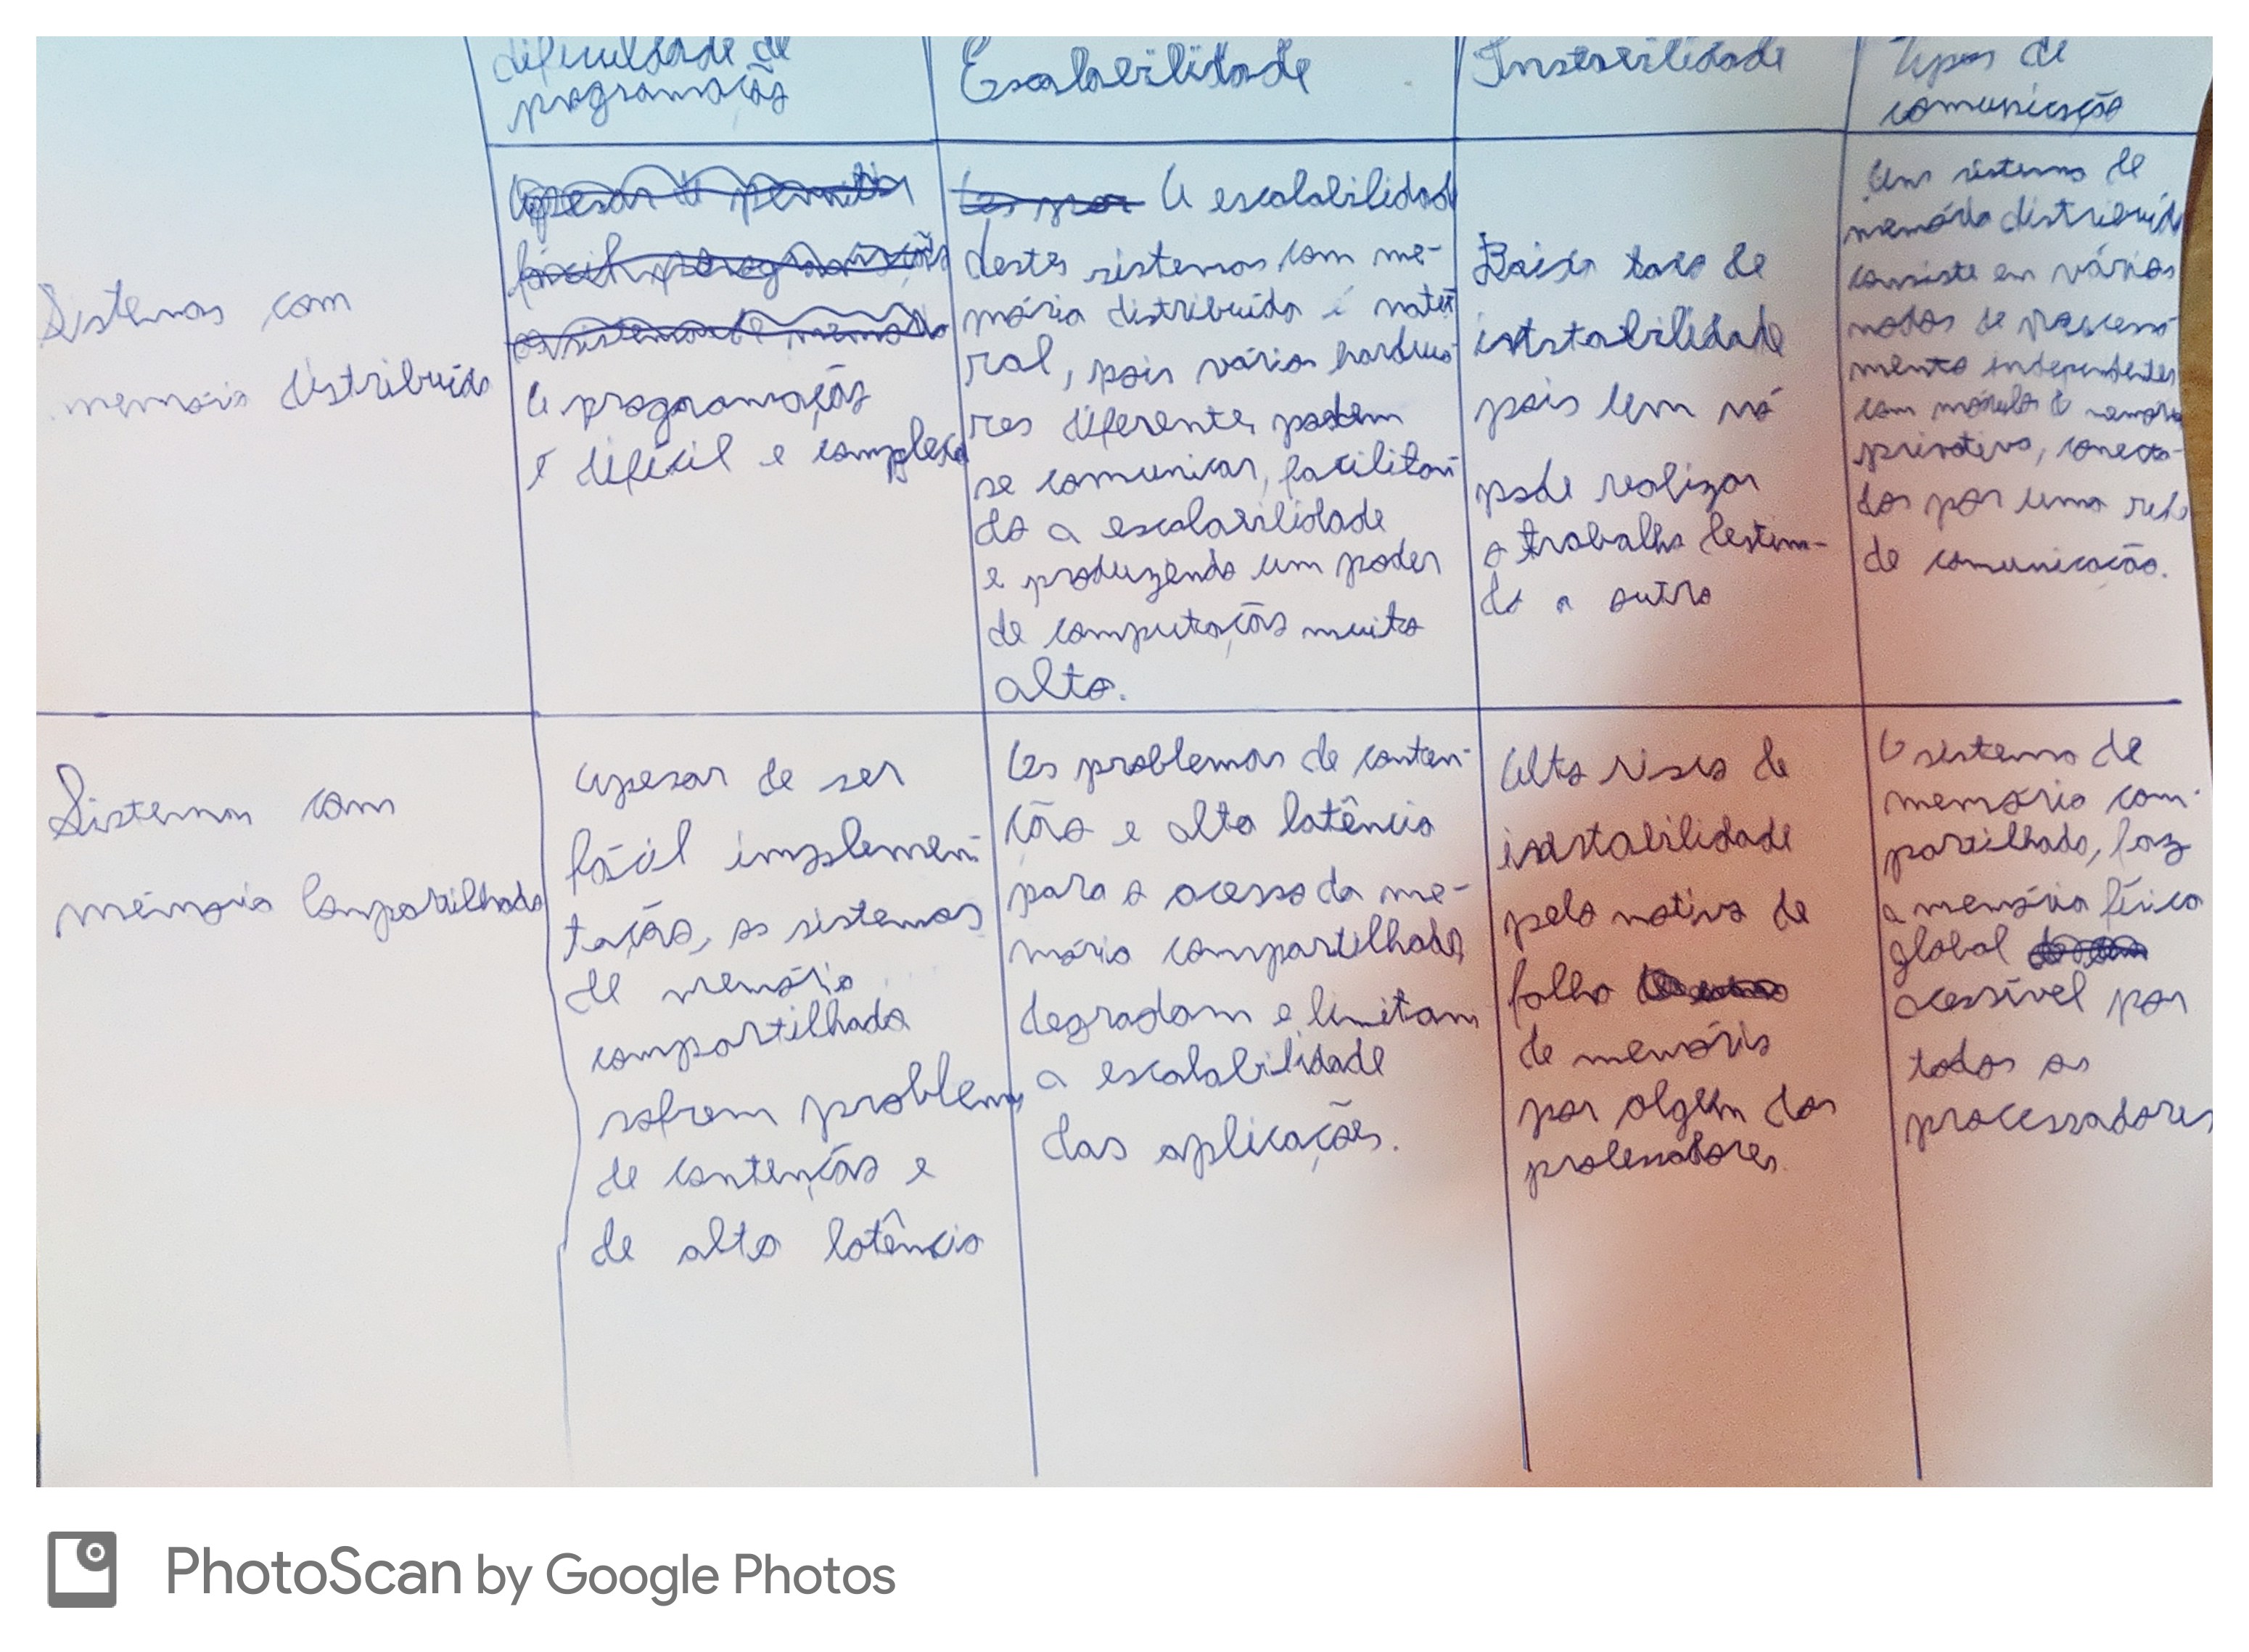 dificuldade de
programação
Escalabilidade
Instabilidade
Tipos de
comunicação
Sistemas com
memória distribuída
Apesar de permitir
fácil programação
os sistemas de memória
A programação
é difícil e complexa
Os por A escalabilidade
destes sistemas com me-
mória distribuída é natu-
ral, pois vários hardwa-
res diferente, podem
se comunicar, facilitan-
do a escalabilidade
e produzendo um poder
de computação muito
alto.
Baixa taxa de
instabilidade
pois um nó
pode realizar
o trabalho destina-
do a outro
Um sistema de
memória distribuída
consiste em vários
nodos de processa
mento independentes
com módulo de memória
privativa, conecta-
dos por uma rede
de comunicação.
Sistemas com
memória Compartilhada
Apesar de ser
fácil implemen-
tação, os sistemas
de memória
compartilhada
sofrem problemas
de contenção e
de alta latência
Os problemas de conten-
ção e alta latência
para o acesso da me-
mória compartilhada,
degradam e limitam
a escalabilidade
das aplicações.
Alto risco de
instabilidade
pelo motivo de
falha
de memória
por algum dos
processadores.
O sistema de
memória com-
partilhada, faz
a memória física
global
acessível por
todos os
processadores
PhotoScan by Google Photos